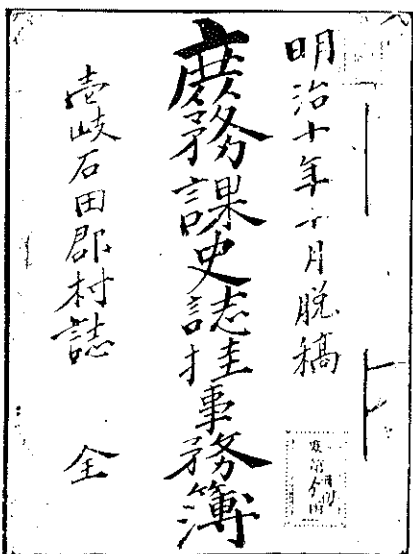 明治十年十月脱稿
庶務課史誌挂事務簿
壱岐石田郡村誌 全